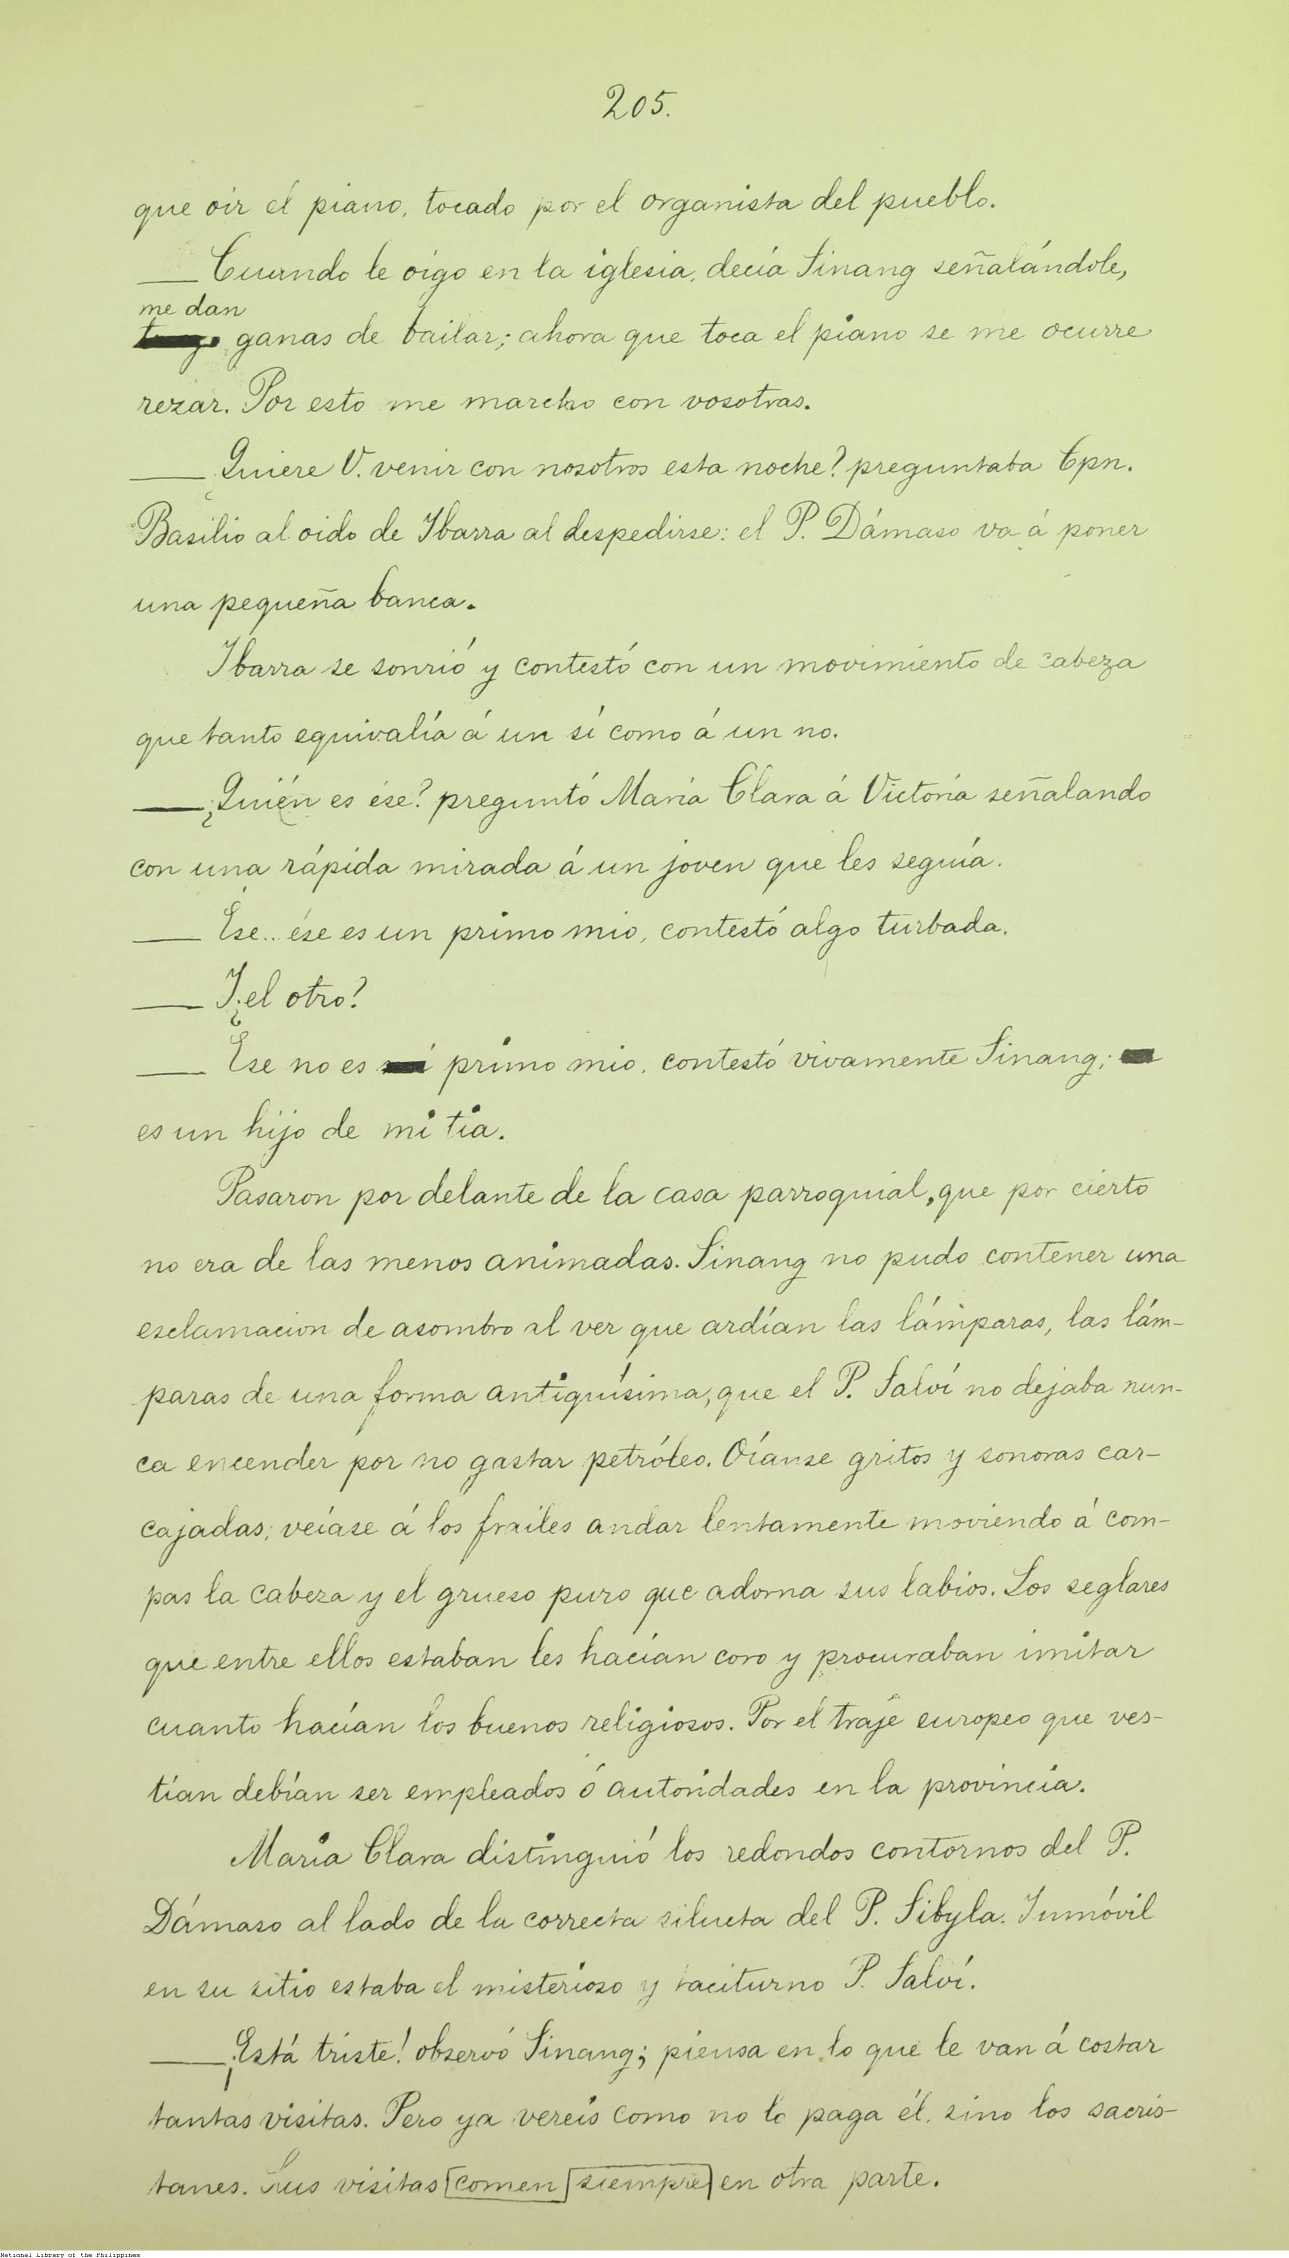 205.
que oir el piano, tocado por el organista del pueblo.
— Cuando le oígo en la iglesia, decía Sinang señalándole,
me dan
ganas de bailar; ahora que toca el piano se me ocurre
rezar. Por esto me marcho con vosotras.
— ¿Quiere V. venir con nosotros esta noche? preguntaba Cpn.
Basilio al oido de Ibarra al despedirse: el P. Dámaso va á poner
una pequeña banca.
Ibarra se sonrió y contestó con un movimiento de cabeza
que tanto equivalía á un sí como á un no.
— ¿Quién es ése? preguntó María Clara á Victoria señalando
con una rápida mirada á un joven que les seguía.
— Ése.. ése es un primo mio, contestó algo turbada.
— Y ¿el otro?
— Ése no es primo mio, contestó vivamente Sinang;
es un hijo de mi tia.
Pasaron por delante de la casa parroquial, que por cierto
no era de las menos animadas. Sinang no pudo contener una
esclamacion de asombro al ver que ardían las lámparas, las lám-
paras de una forma antiquísima, que el P. Salví no dejaba nun-
ca encender por no gastar petróleo. Oíanse gritos y sonoras car-
cajadas; veíase á los frailes andar lentamente moviendo á com-
pas la cabeza y el grueso puro que adorna sus labios. Los seglares
que entre ellos estaban les hacían coro y procuraban imitar
cuanto hacían los buenos religiosos. Por el traje europeo que ves-
tían debían ser empleados ó autoridades en la provincia.
María Clara distinguió los redondos contornos del P.
Dámaso al lado de la correcta silueta del P. Sibyla. Inmóvil
en su sitio estaba el misterioso y taciturno P. Salví.
— ¡Está triste! observó Sinang; piensa en lo que le van á costar
tantas visitas. Pero ya vereis como no lo paga él, sino los sacris-
tanes. Sus visitas comen siempre en otra parte.
National Library of the Philippines